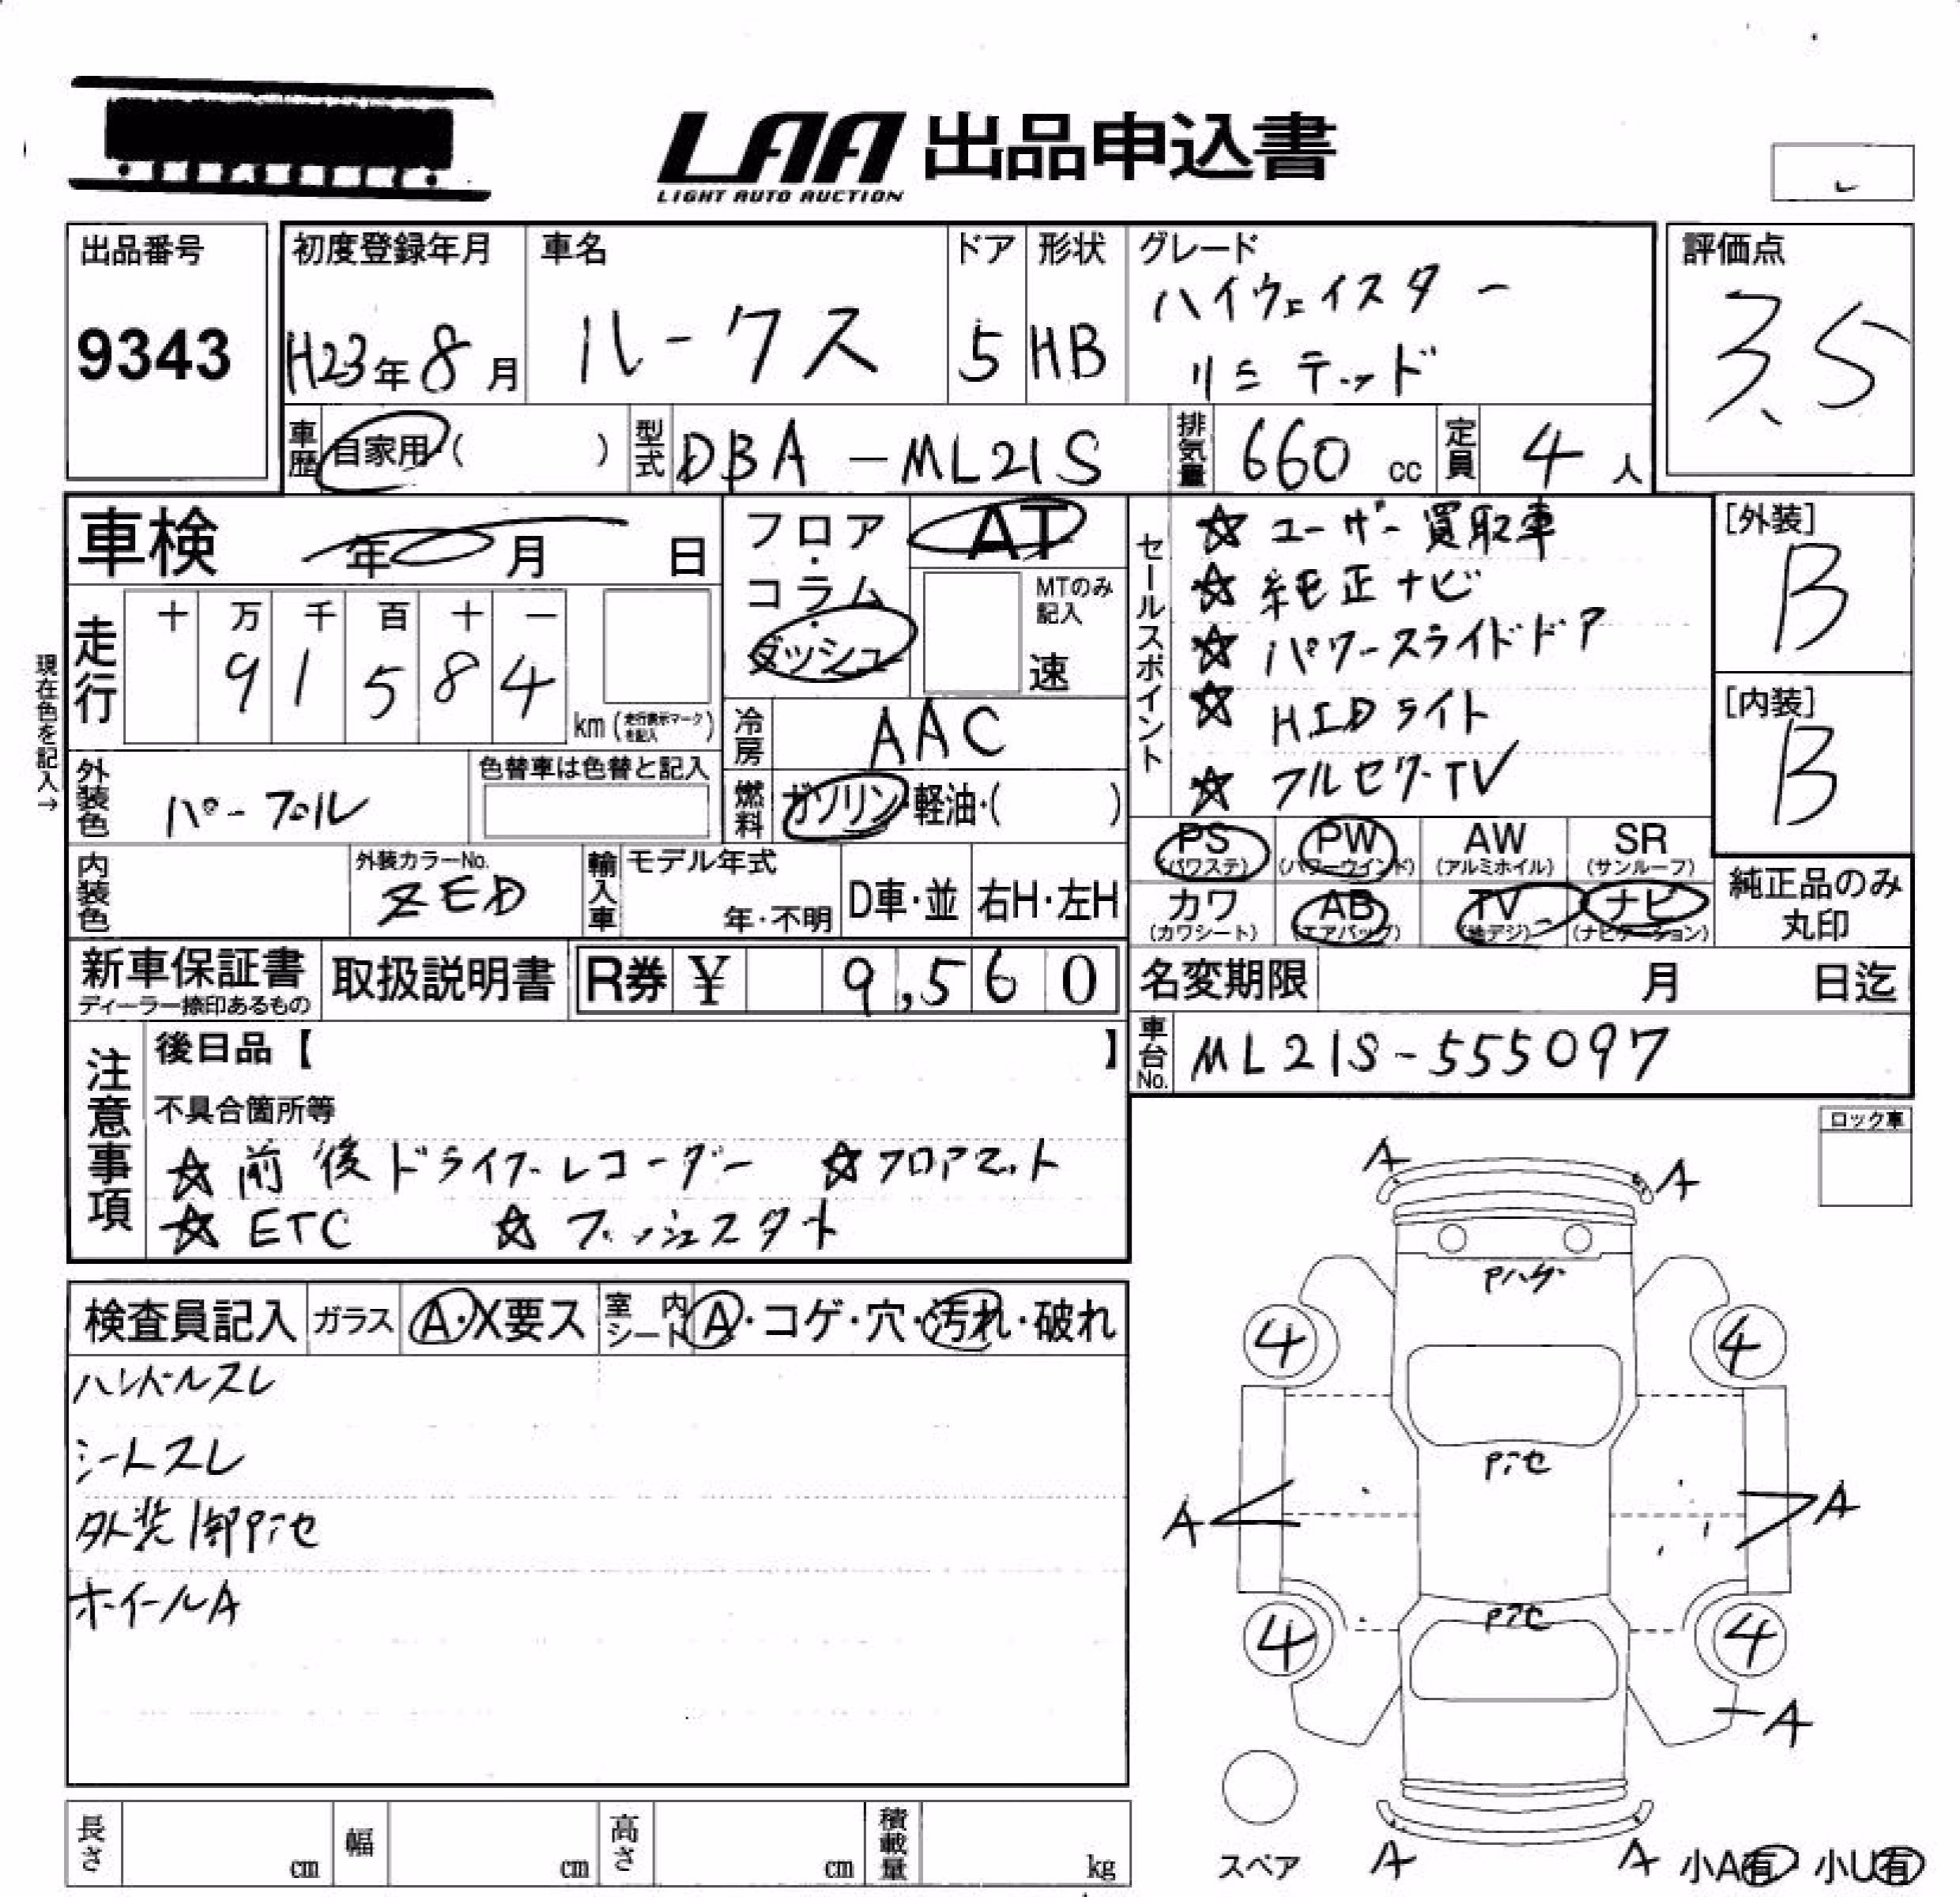 LAA 出品申込書
LIGHT AUTO AUCTION
出品番号
9343
初度登録年月
H23年8月
車名
ルークス
ドア
5
形状
HB
グレード
ハイウェイスター
リミテッド
評価点
3.5
車歴
自家用・( )
型式
DBA-ML21S
排気量
660 cc
定員
4人
車検 年 月 日
フロア・コラム・ダッシュ
AT
MTのみ記入
速
セールスポイント
☆ ユーザー買取車
☆ 純正ナビ
☆ パワースライドドア
☆ HIDライト
☆ フルセグTV
[外装]
B
[内装]
B
現在色を記入→
走行
十 万 千 百 十 一
9 1 5 8 4
km (走行表示マークを記入)
冷房
AAC
外装色
パープル
色替車は色替と記入
燃料
ガソリン・軽油・( )
PS (パワステ)
PW (パワーウインド)
AW (アルミホイル)
SR (サンルーフ)
カワ (カワシート)
AB (エアバッグ)
TV (地デジ)
ナビ (ナビゲーション)
純正品のみ
丸印
内装色
外装カラーNo.
ZED
輸入車
モデル年式
年・不明
D車・並
右H・左H
新車保証書
ディーラー捺印あるもの
取扱説明書
R券 ¥ 9,560
名変期限 月 日迄
車台No.
ML21S-555097
注意事項
後日品【 】
不具合箇所等
☆ 前後ドライブレコーダー ☆ フロアマット
☆ ETC ☆ プッシュスタート
ロック車
検査員記入
ガラス
A・X要ス
室内シート
A・コゲ・穴・汚れ・破れ
ハンドルスレ
シートスレ
ホイールA
A A
Pハゲ
4 4
A A
4 4
A
スペア
A A
小A有 小U有
長さ cm
幅 cm
高さ cm
積載量 kg